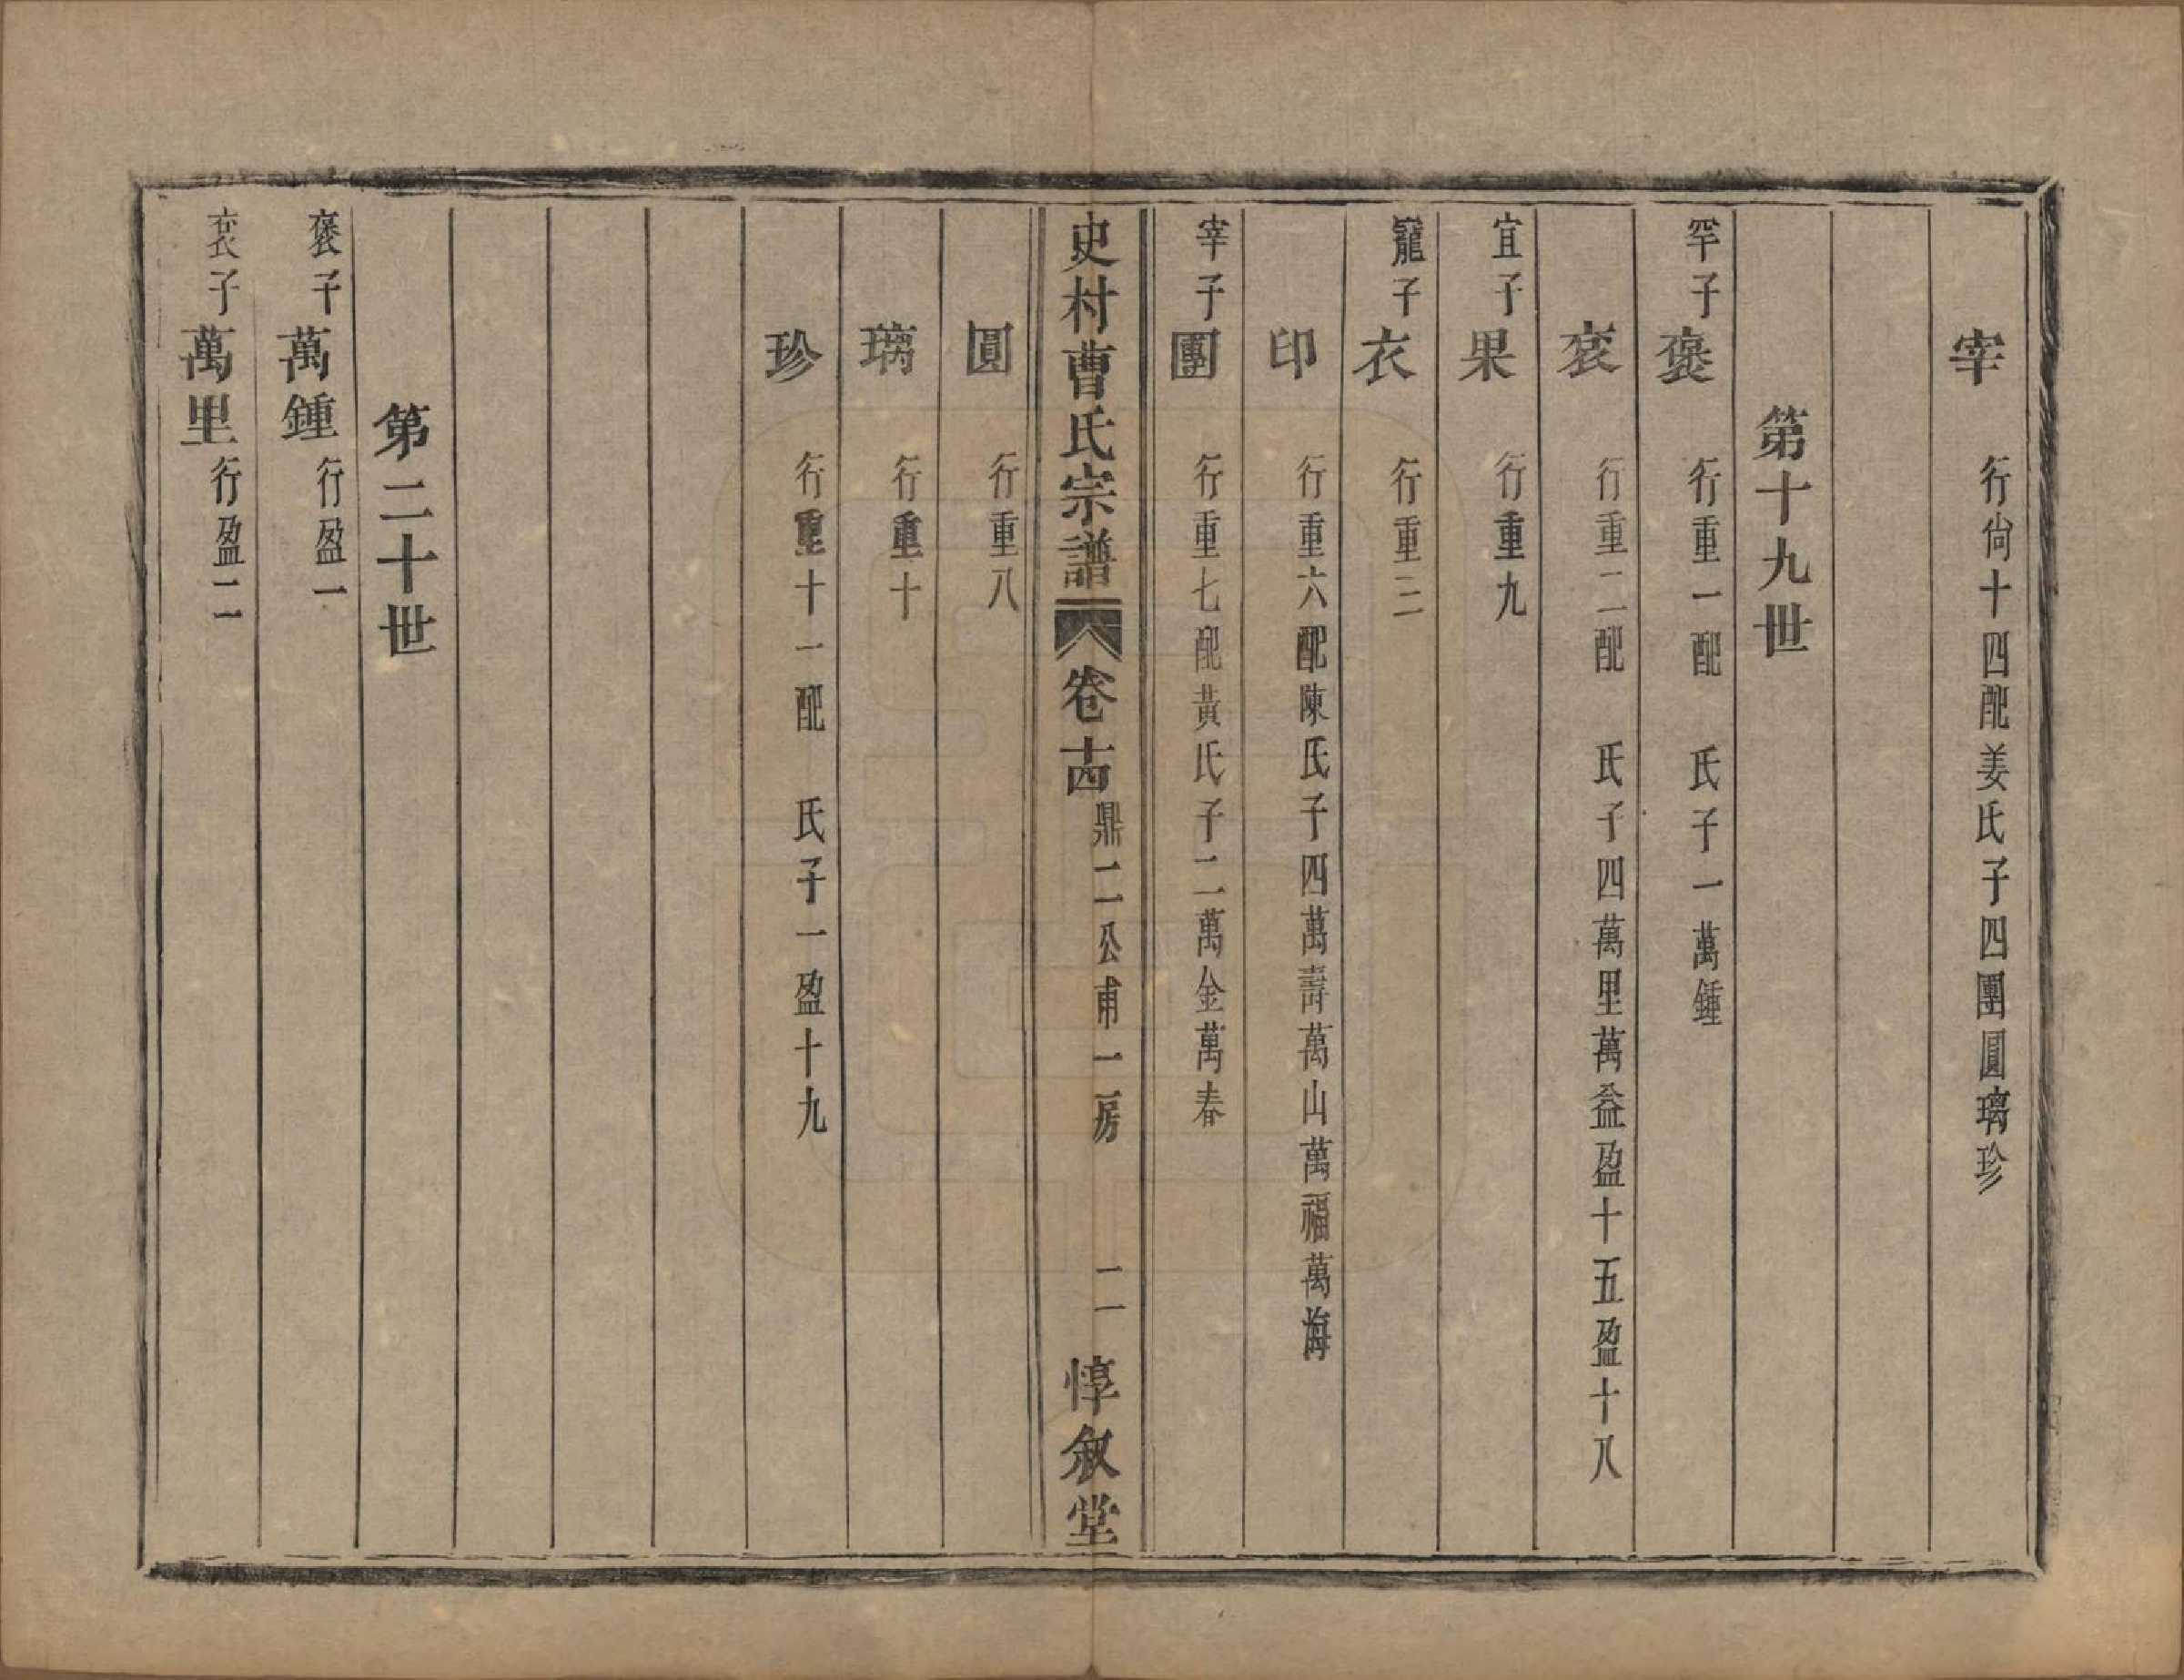 宰 行尙十四配姜氏子四團圓璃珍
第十九世
罕子褒 行重一配 氏子一萬鍾
袞 行重二配 氏子四萬里萬益盈十五盈十八
宜子果 行重九
寵子衣 行重三
印 行重六配陳氏子四萬壽萬山萬福萬海
宰子團 行重七配黃氏子二萬金萬春
史村曹氏宗譜 卷十四 鼎二公甫一房 二 惇敘堂
圓 行重八
璃 行重十
珍 行重十一配 氏子一盈十九
第二十世
褒子萬鍾 行盈一
袞子萬里 行盈二